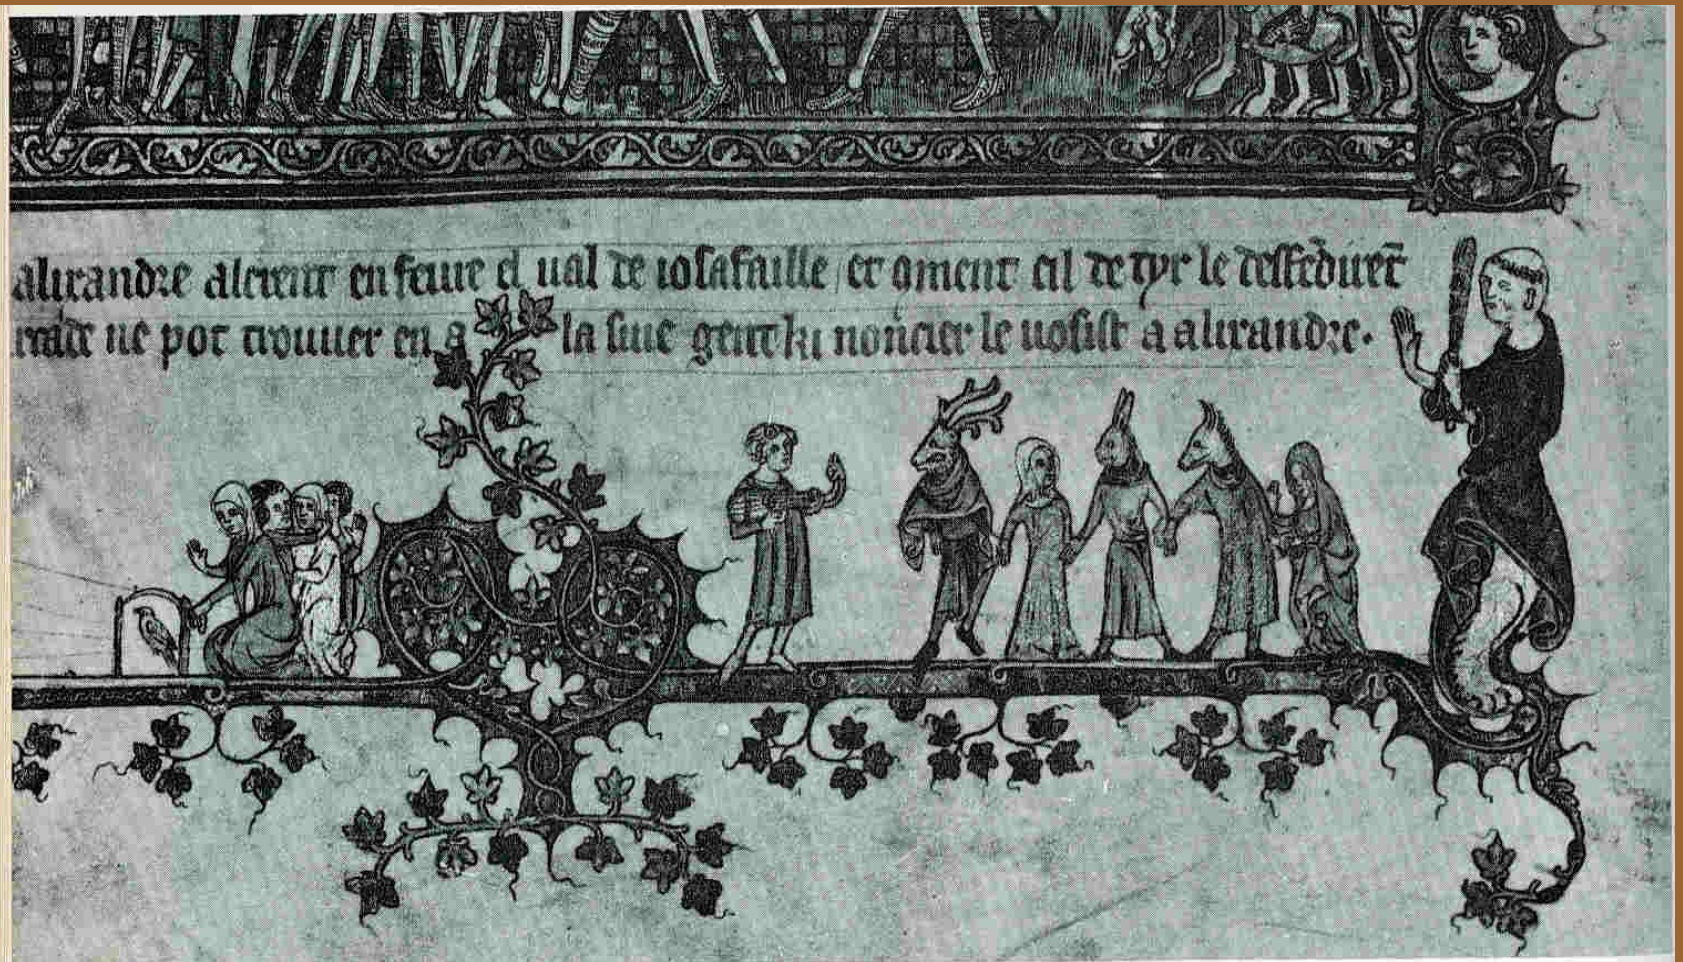 alixandre alerent en feure el ual de iosafaille et qment cil de tyr le desfēdirēt
ne pot trouuer en la siue gent ki nōncier le uosist a alixandre.